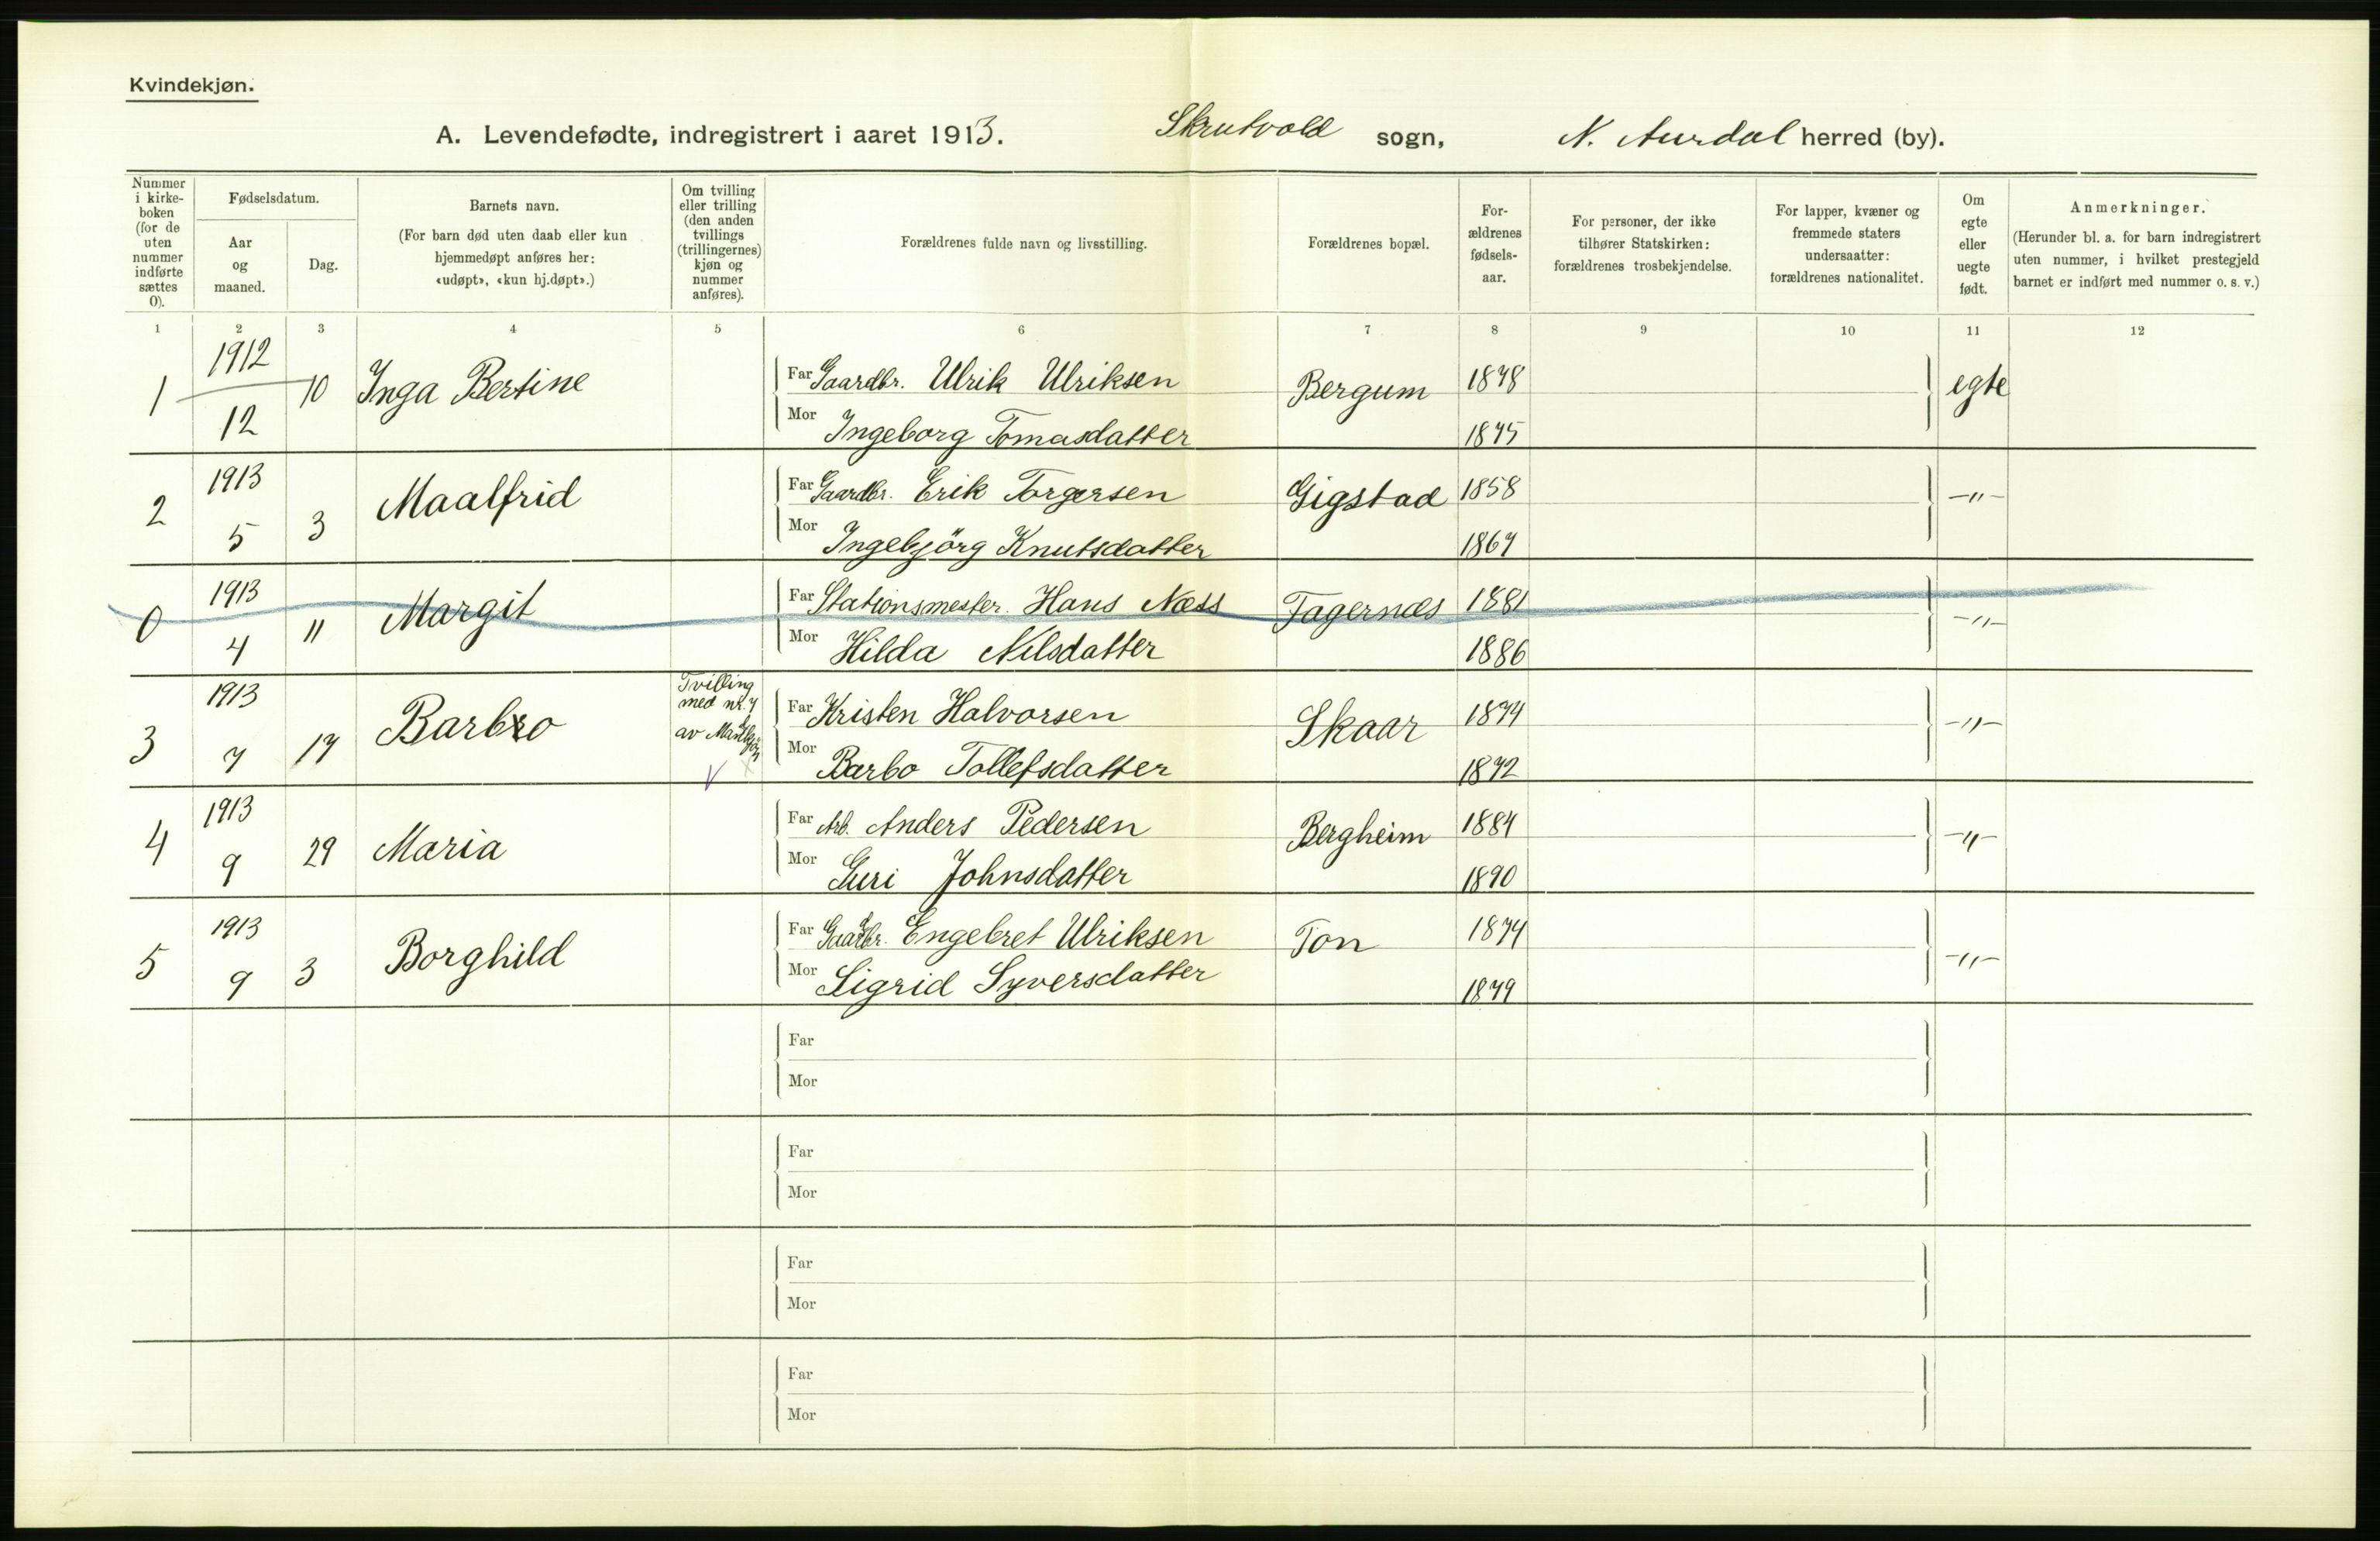 Kvindekjøn.
A. Levendefødte, indregistrert i aaret 1913. Skrutvold sogn, N. Aurdal herred (by).
Nummer i kirke-boken (for de uten nummer indførte sættes 0).
Fødselsdatum.
Aar og maaned.
Dag.
Barnets navn.
(For barn død uten daab eller kun hjemmedøpt anføres her: «udøpt», «kun hj.døpt».)
Om tvilling eller trilling (den anden tvillings (trillingernes) kjøn og nummer anføres).
Forældrenes fulde navn og livsstilling.
Forældrenes bopæl.
For-ældrenes fødsels-aar.
For personer, der ikke tilhører Statskirken: forældrenes trosbekjendelse.
For lapper, kvæner og fremmede staters undersaatter: forældrenes nationalitet.
Om egte eller uegte født.
Anmerkninger.
(Herunder bl. a. for barn indregistrert uten nummer, i hvilket prestegjeld barnet er indført med nummer o. s. v.)
1 2 3 4 5 6 7 8 9 10 11 12
1 1912 12 10 Inga Bertine Far Gaardbr. Ulrik Ulriksen Bergum 1878 egte
Mor Ingeborg Tomasdatter 1875
2 1913 5 3 Maalfrid Far Gaardbr. Erik Torgersen Gigstad 1858 -"-
Mor Ingebjörg Knutsdatter 1867
0 1913 4 11 Margit Far Stationsmester. Hans Næss Fagernæs 1881 -"-
Mor Hilda Nilsdatter 1886
3 1913 7 17 Barbro Tvilling med nr. 7 av Mandkjön V Far Kristen Halvorsen Skaar 1874 -"-
Mor Barbo Tollefsdatter 1872
4 1913 9 29 Maria Far Arb. Anders Pedersen Bergheim 1884 -"-
Mor Guri Johnsdatter 1890
5 1913 9 3 Borghild Far Gaardbr. Engebret Ulriksen Ton 1874 -"-
Mor Sigrid Syversdatter 1879
Far
Mor
Far
Mor
Far
Mor
Far
Mor